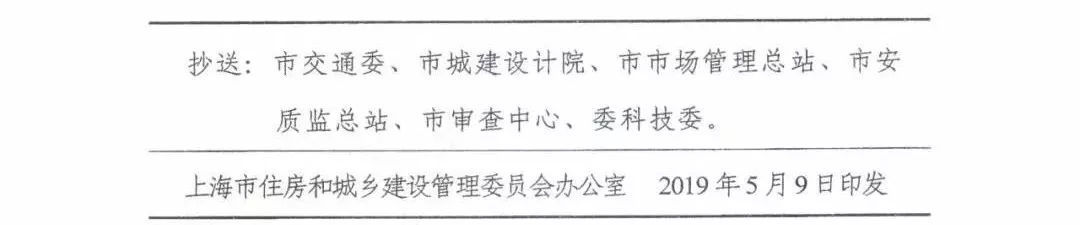 抄送：市交通委、市城建设计院、市市场管理总站、市安
质监总站、市审查中心、委科技委。
上海市住房和城乡建设管理委员会办公室 2019年5月9日印发